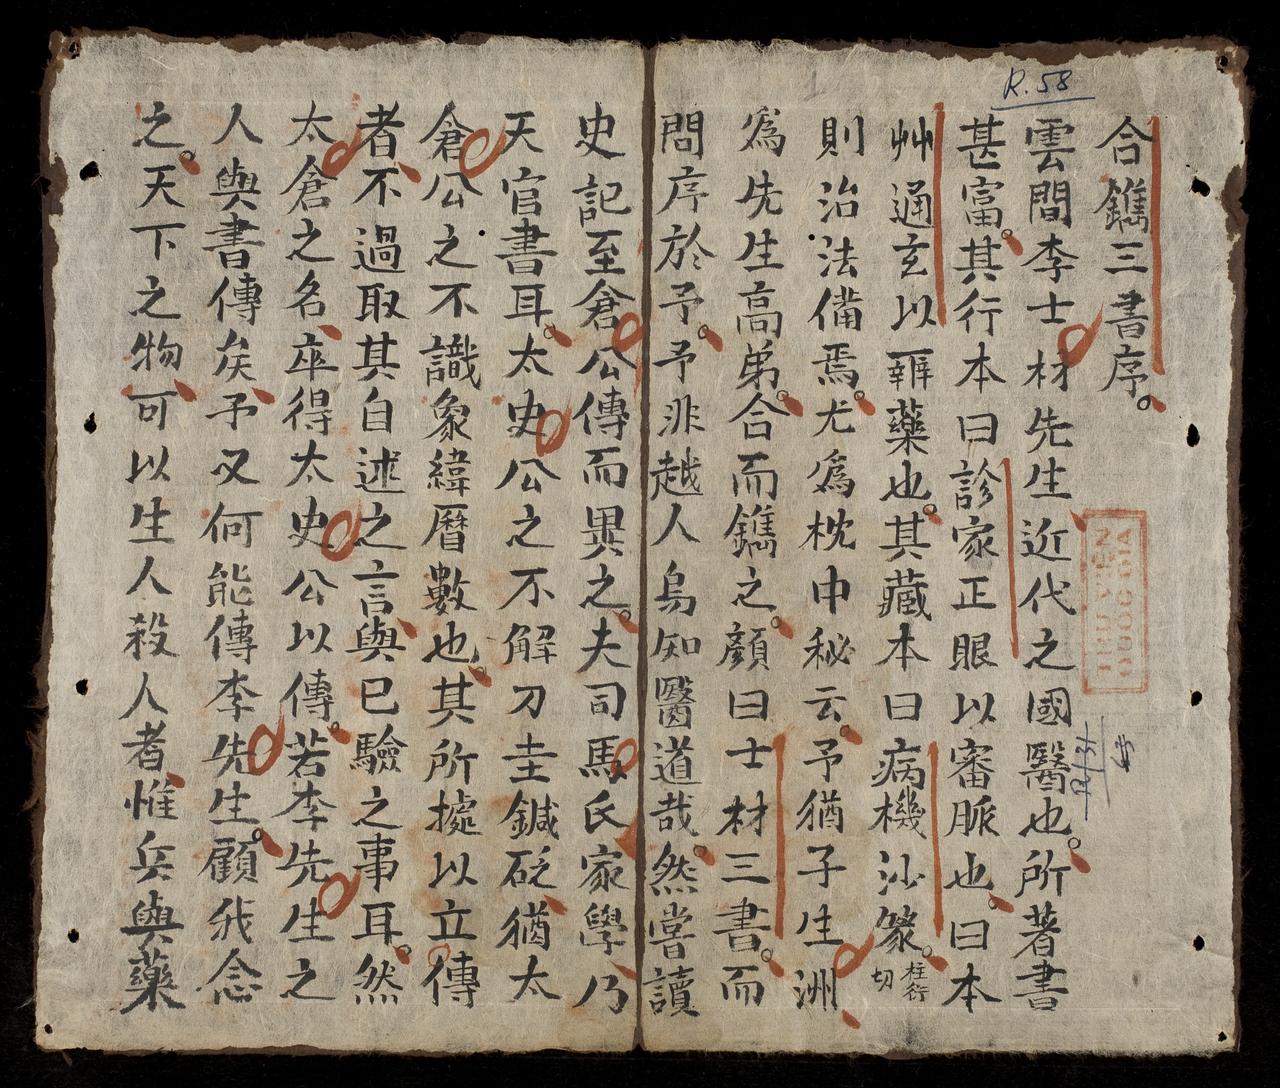 R.58
合鐫三書序
雲間李士材先生近代之國醫也所著書
甚富其行本曰診家正眼以審脈也曰本
艸通玄以辨藥也其藏本曰病機沙篆柱衍切
則治法備焉尤爲枕中秘云予猶子生洲
爲先生高弟合而鐫之顏曰士材三書而
問序於予予非越人烏知醫道哉然嘗讀
史記至倉公傳而異之夫司馬氏家學乃
天官書耳太史公之不解刀圭鍼砭猶太
倉公之不識象緯曆數也其所據以立傳
者不過取其自述之言與已驗之事耳然
太倉之名卒得太史公以傳若李先生之
人與書傳矣予又何能傳李先生顧我念
之天下之物可以生人殺人者惟兵與藥